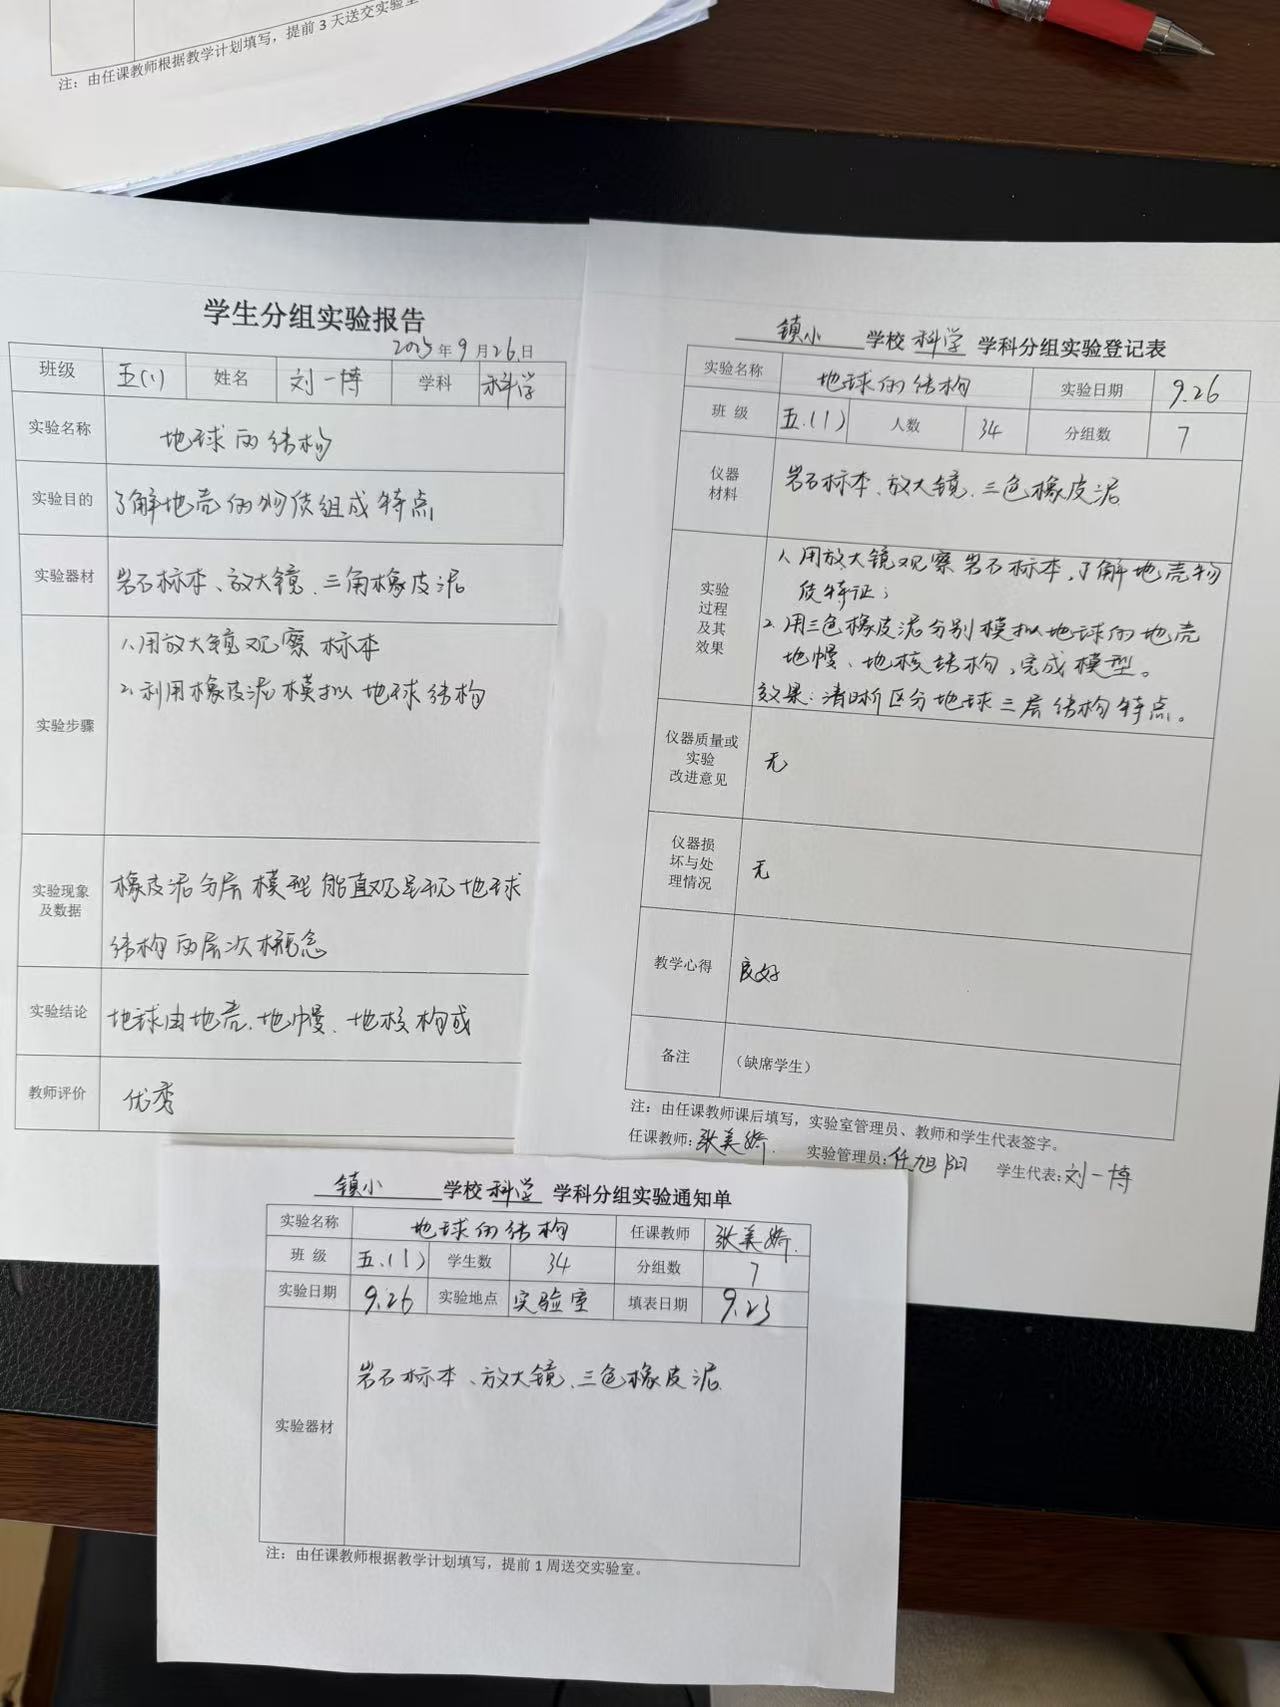 注：由任课教师根据教学计划填写，提前 3 天送交实验室
学生分组实验报告
2025 年 9 月 26 日
班级 五(1) 姓名 刘一博 学科 科学
实验名称 地球的结构
实验目的 了解地壳的物质组成特点
实验器材 岩石标本、放大镜、三角橡皮泥
实验步骤
1、用放大镜观察标本
2、利用橡皮泥模拟地球结构
实验现象及数据
橡皮泥分层模型能直观呈现地球
结构的层次概念
实验结论 地球由地壳、地幔、地核构成
教师评价 优秀
镇小 学校 科学 学科分组实验登记表
实验名称 地球的结构 实验日期 9.26
班 级 五.(1) 人数 34 分组数 7
仪器
材料
岩石标本、放大镜、三色橡皮泥
实验
过程
及其
效果
1、用放大镜观察岩石标本，了解地壳物
质特征；
2、用三色橡皮泥分别模拟地球的地壳
地幔、地核结构，完成模型。
效果：清晰区分地球三层结构特点。
仪器质量或
实验
改进意见
无
仪器损
坏与处
理情况
无
教学心得 良好
备注 （缺席学生）
注：由任课教师课后填写，实验室管理员、教师和学生代表签字。
任课教师：张美娇 实验管理员：任旭阳 学生代表：刘一博
镇小 学校 科学 学科分组实验通知单
实验名称 地球的结构 任课教师 张美娇
班 级 五.(1) 学生数 34 分组数 7
实验日期 9.26 实验地点 实验室 填表日期 9.23
实验器材 岩石标本、放大镜、三色橡皮泥
注：由任课教师根据教学计划填写，提前 1 周送交实验室。